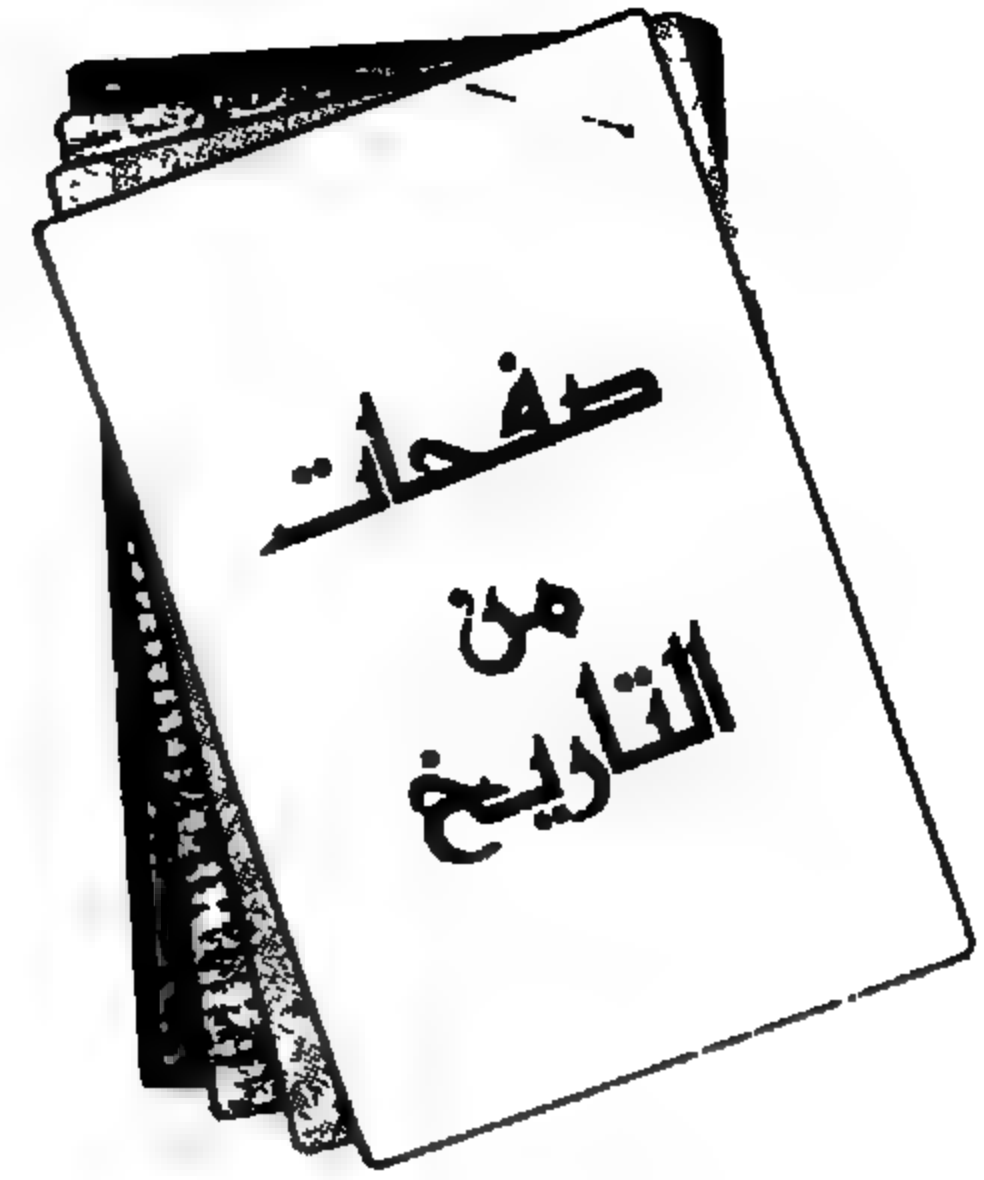 صفحات
من
التاريخ